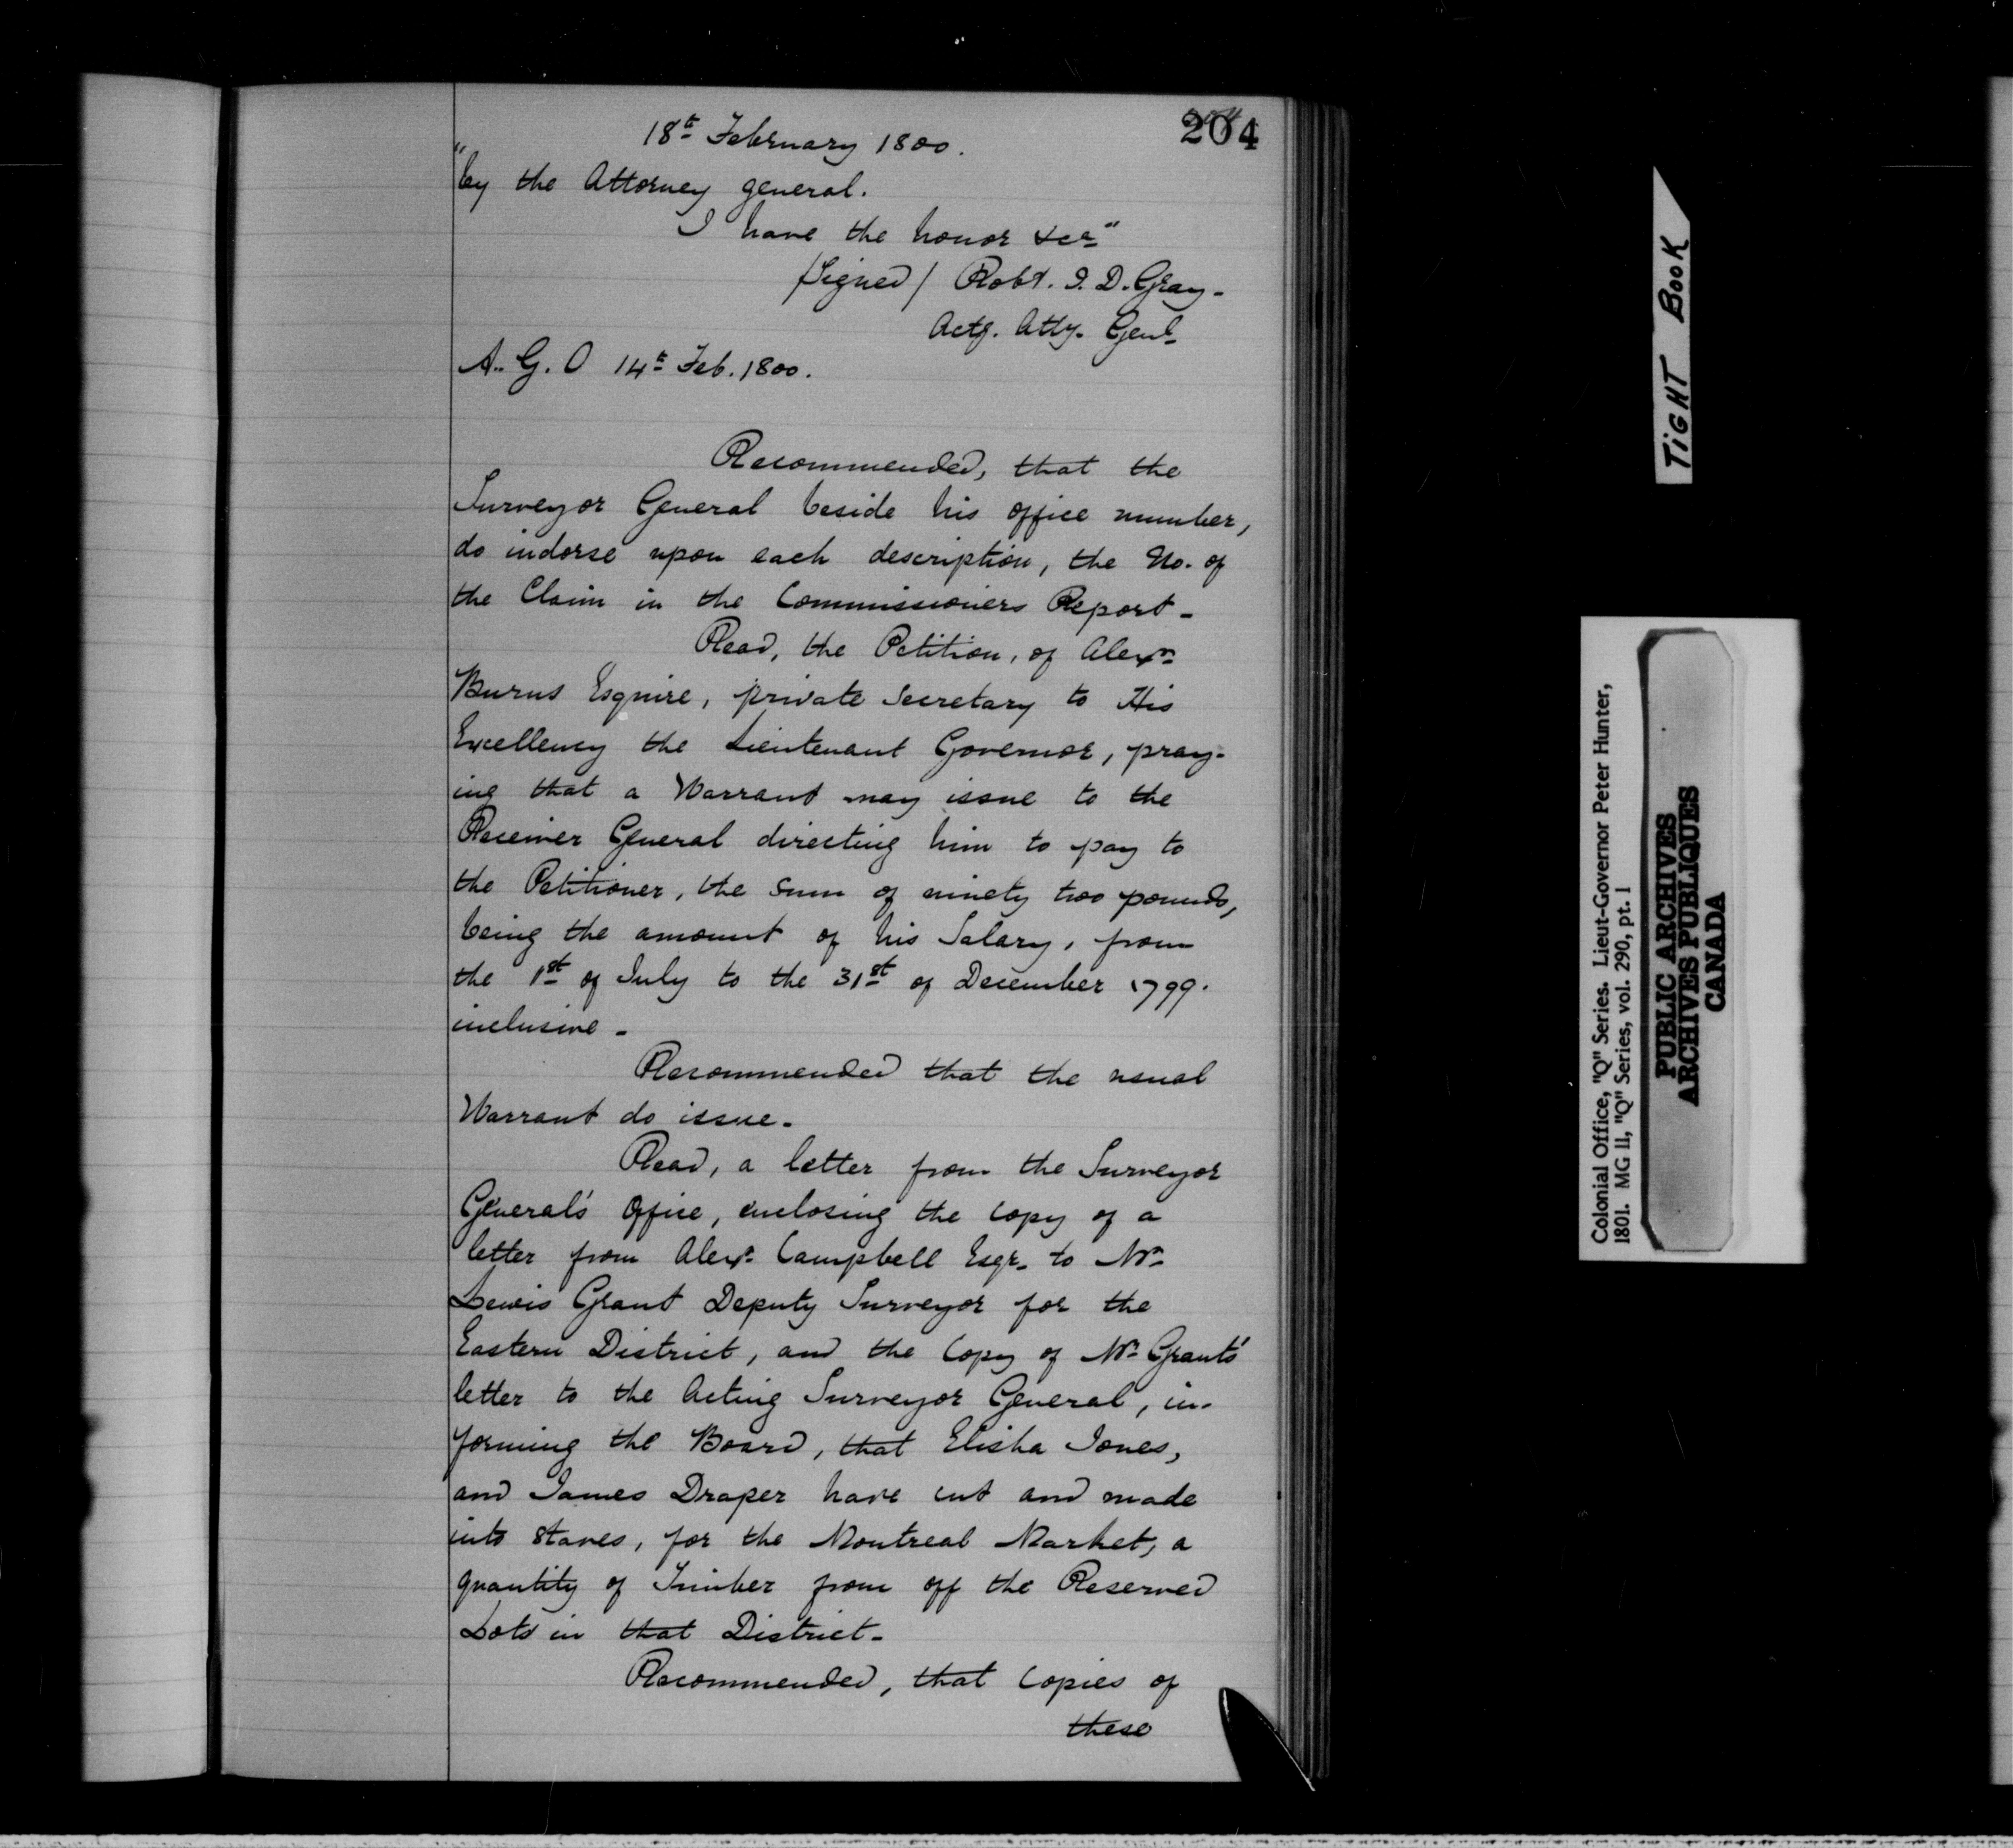 204
18th February 1800.
"by the Attorney general.
I have the honor &ca"
/Signed/ Robt. I. D. Gray-
Actg. Atty. Genl-
A. G. O 14th Feb. 1800.
Recommended, that the
Surveyor General beside his office number,
do indorse upon each description, the No. of
the Claim in the Commissioners Report-
Read, the Petition, of Alexr
Burns Esquire, private Secretary to His
Excellency the Lieutenant Governor, pray-
ing that a Warrant may issue to the
Receiver General directing him to pay to
the Petitioner, the sum of ninety two pounds,
being the amount of his Salary, from
the 1st of July to the 31st of December 1799.
inclusive-
Recommended that the usual
Warrant do issue.
Read, a letter from the Surveyor
General's Office, enclosing the copy of a
letter from Alexr Campbell Esqr. to Mr
Lewis Grant Deputy Surveyor for the
Eastern District, and the Copy of Mr Grants'
letter to the Acting Surveyor General, in-
forming the Board, that Elisha Jones,
and James Draper have cut and made
into staves, for the Montreal Market, a
quantity of Timber from off the Reserved
Lots in that District-
Recommended, that Copies of
these
TIGHT BOOK
Colonial Office, "Q" Series. Lieut-Governor Peter Hunter,
1801. MG 11, "Q" Series, vol. 290, pt. 1
PUBLIC ARCHIVES
ARCHIVES PUBLIQUES
CANADA